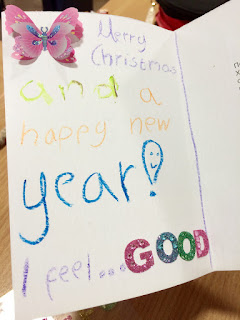 Merry
Christmas
and a
happy new
year!
I feel...GOOD